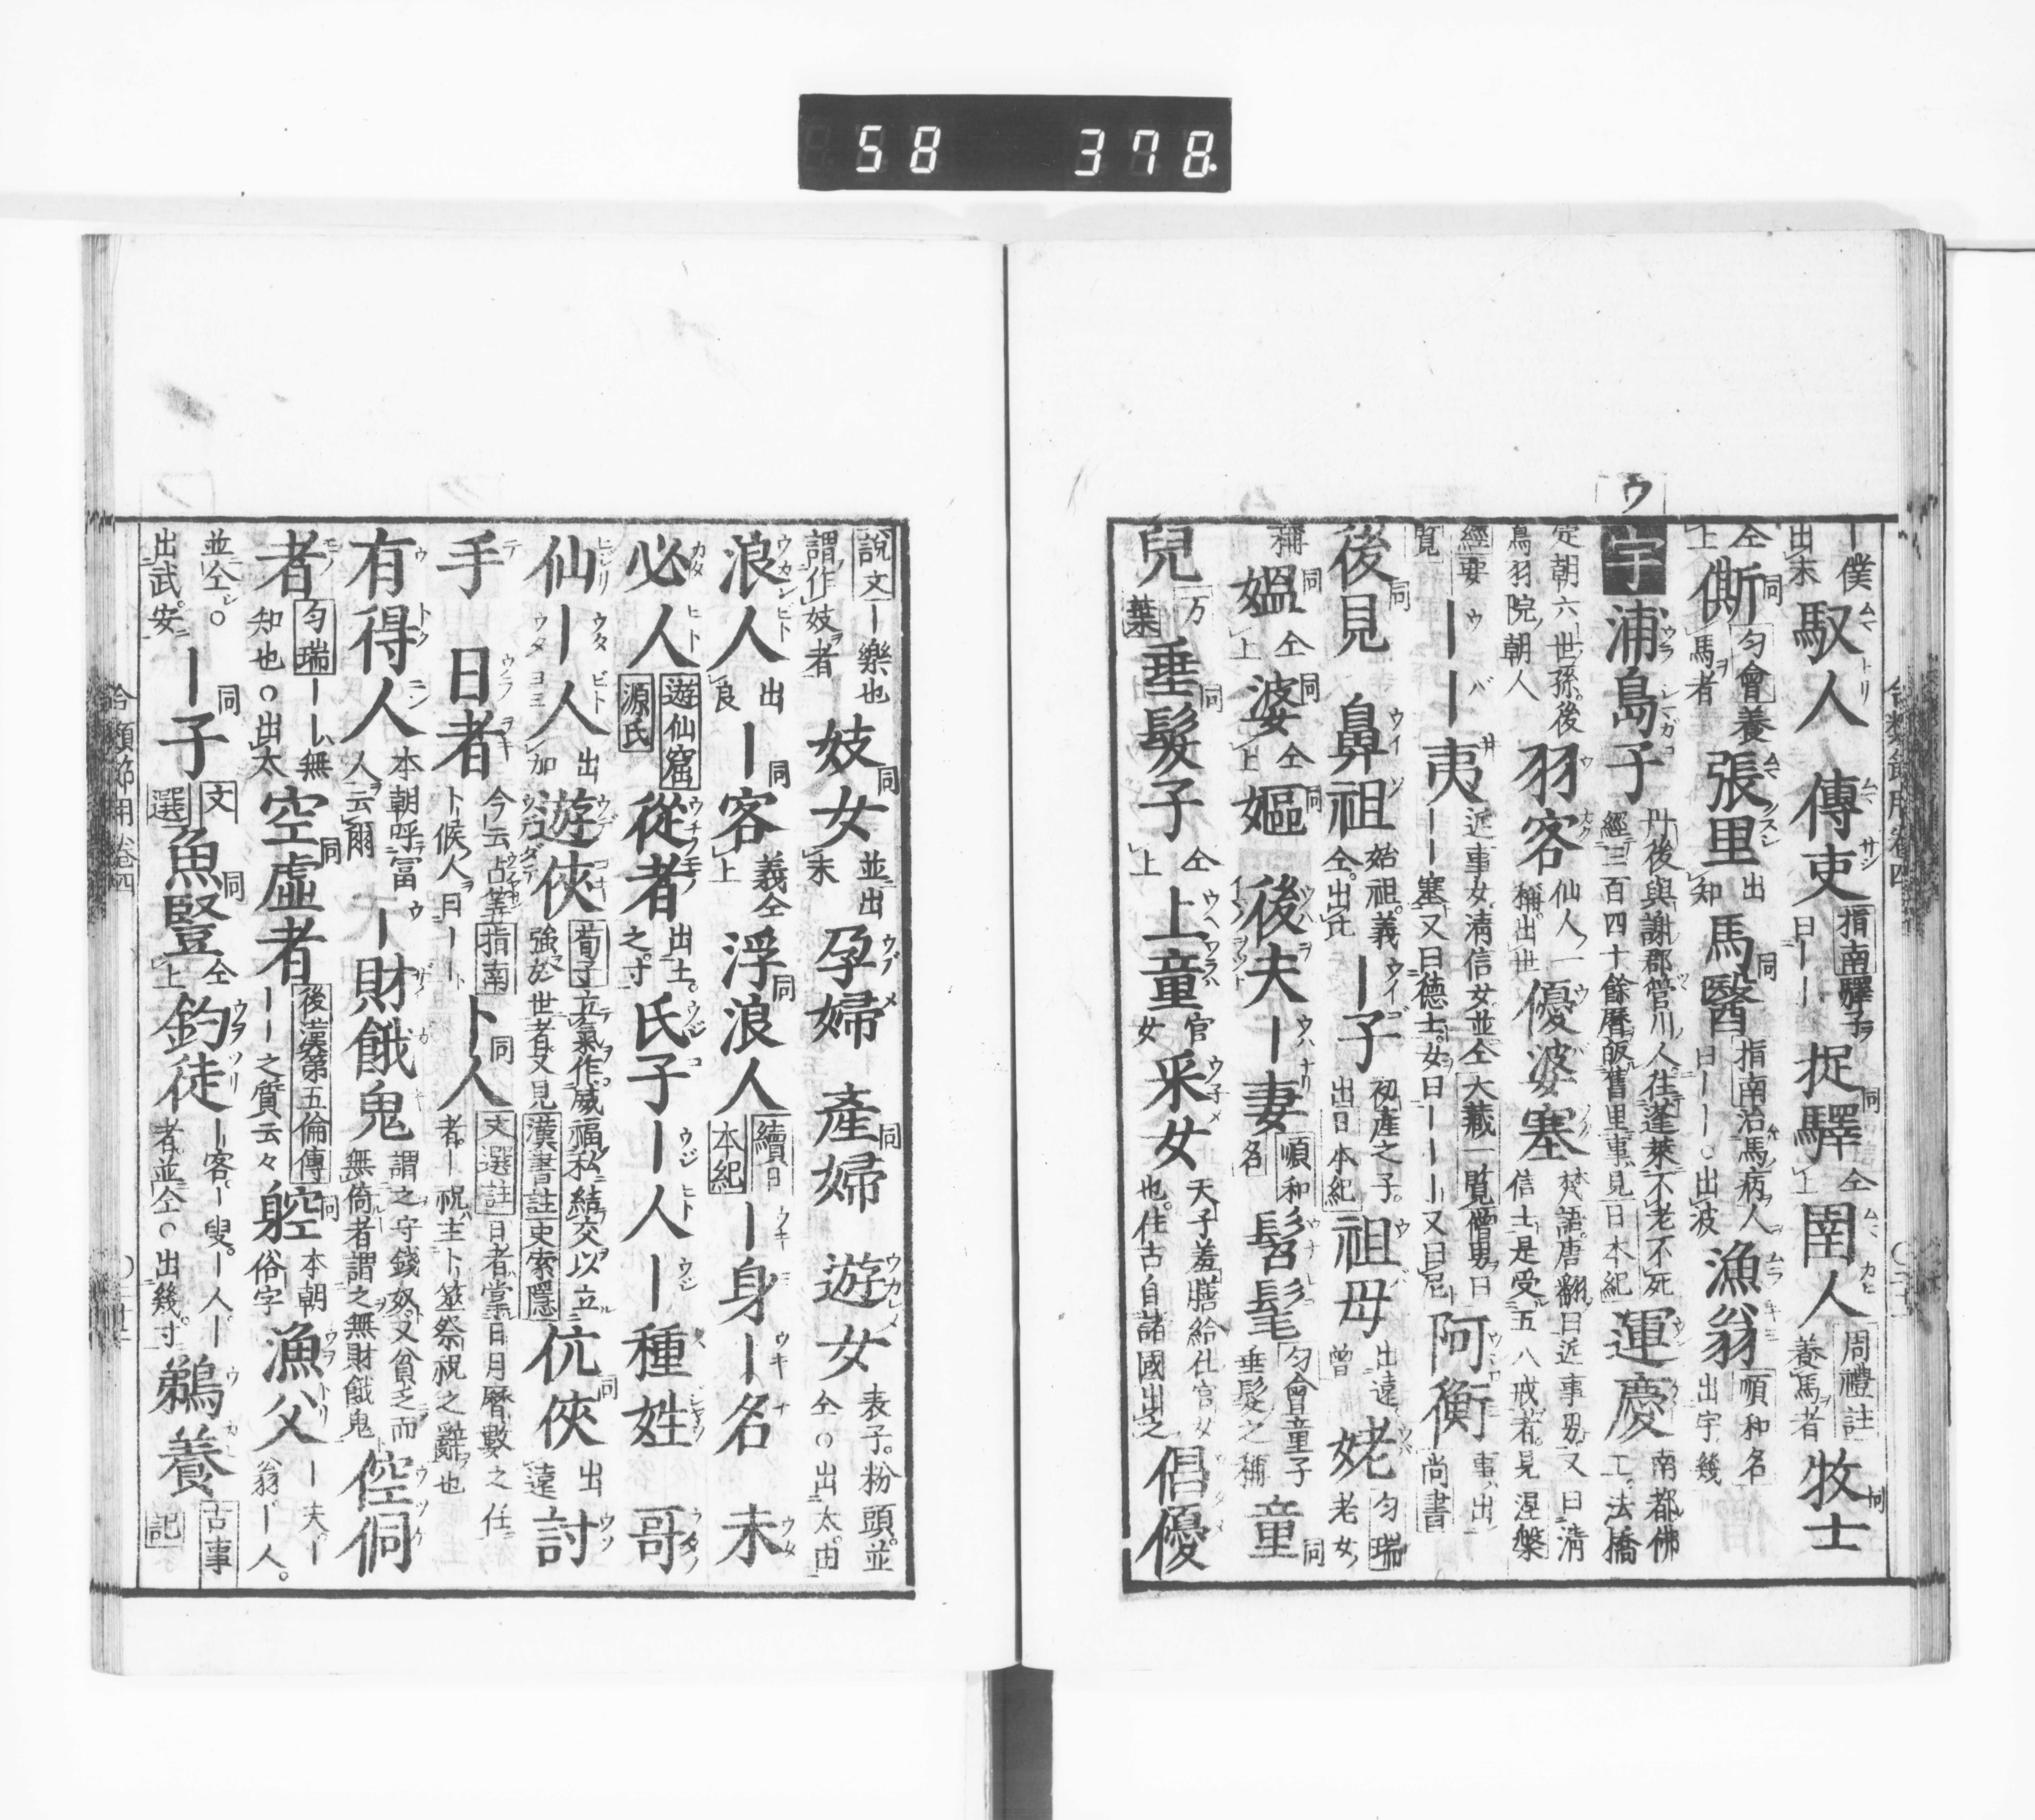 58 378
ウ
｜僕出末馭人傳吏指南驛子ヲ曰｜｜捉驛同仝上圉人周禮註養馬者牧士同
仝上㒋同匀會養馬ヲ者張里出知馬醫同指南治馬病人曰｜｜○出波漁翁順和名出宇幾
宇浦島子丹後與謝郡管川人往蓬莱不老不死經三百四十餘暦皈舊里事見日本紀運慶南都佛工法橋
定朝六世孫後鳥羽院朝人羽客仙人一稱出世優婆塞梵語唐翻曰近事男又曰清信士是受五八戒者見涅槃
經要｜｜夷近事女清信女並仝大藏一覧僧男曰｜｜塞又曰德士女曰｜｜｜又曰尼阿衡事出尚書
後見同鼻祖始祖義仝出比｜子初産之子出日本紀祖母出遠曽姥匀瑞老女
稱媼同仝上婆同仝上嫗同後夫｜妻順和名髫髦匀會童子垂髮之稱童同
兒万葉垂髮子同仝上上童官女采女天子羞膳給仕宮女也往古自諸國出之倡優
説文｜樂也謂作妓者妓女同並出未孕婦産婦同遊女表子粉頭並仝○出太由
浪人出良｜客同義仝上浮浪人同續日本紀｜身｜名未
必人遊仙窟源氏從者出土之寸氏子｜人｜種姓哥
仙｜人出加遊俠荀子立氣作威福私結交以立強於世者又見漢書註史索隱伉俠同出遠討
手日者今云占筭指南卜候人曰｜｜卜人同文選註日者掌日月暦數之任者｜祝主卜筮祭祝之辭也
有得人本朝呼冨人云爾｜財餓鬼謂之守錢奴又貧乏而無倚者謂之無財餓鬼倥侗
者匀瑞｜｜無知也○出太空虚者同後漢第五倫傳｜｜之質云々躻同本朝俗字漁父｜夫｜翁｜人
並仝○出武安｜子同文選魚豎同仝上釣徒｜客｜叟｜人｜者並仝○出幾寸鵜養古事記
合類節用卷四